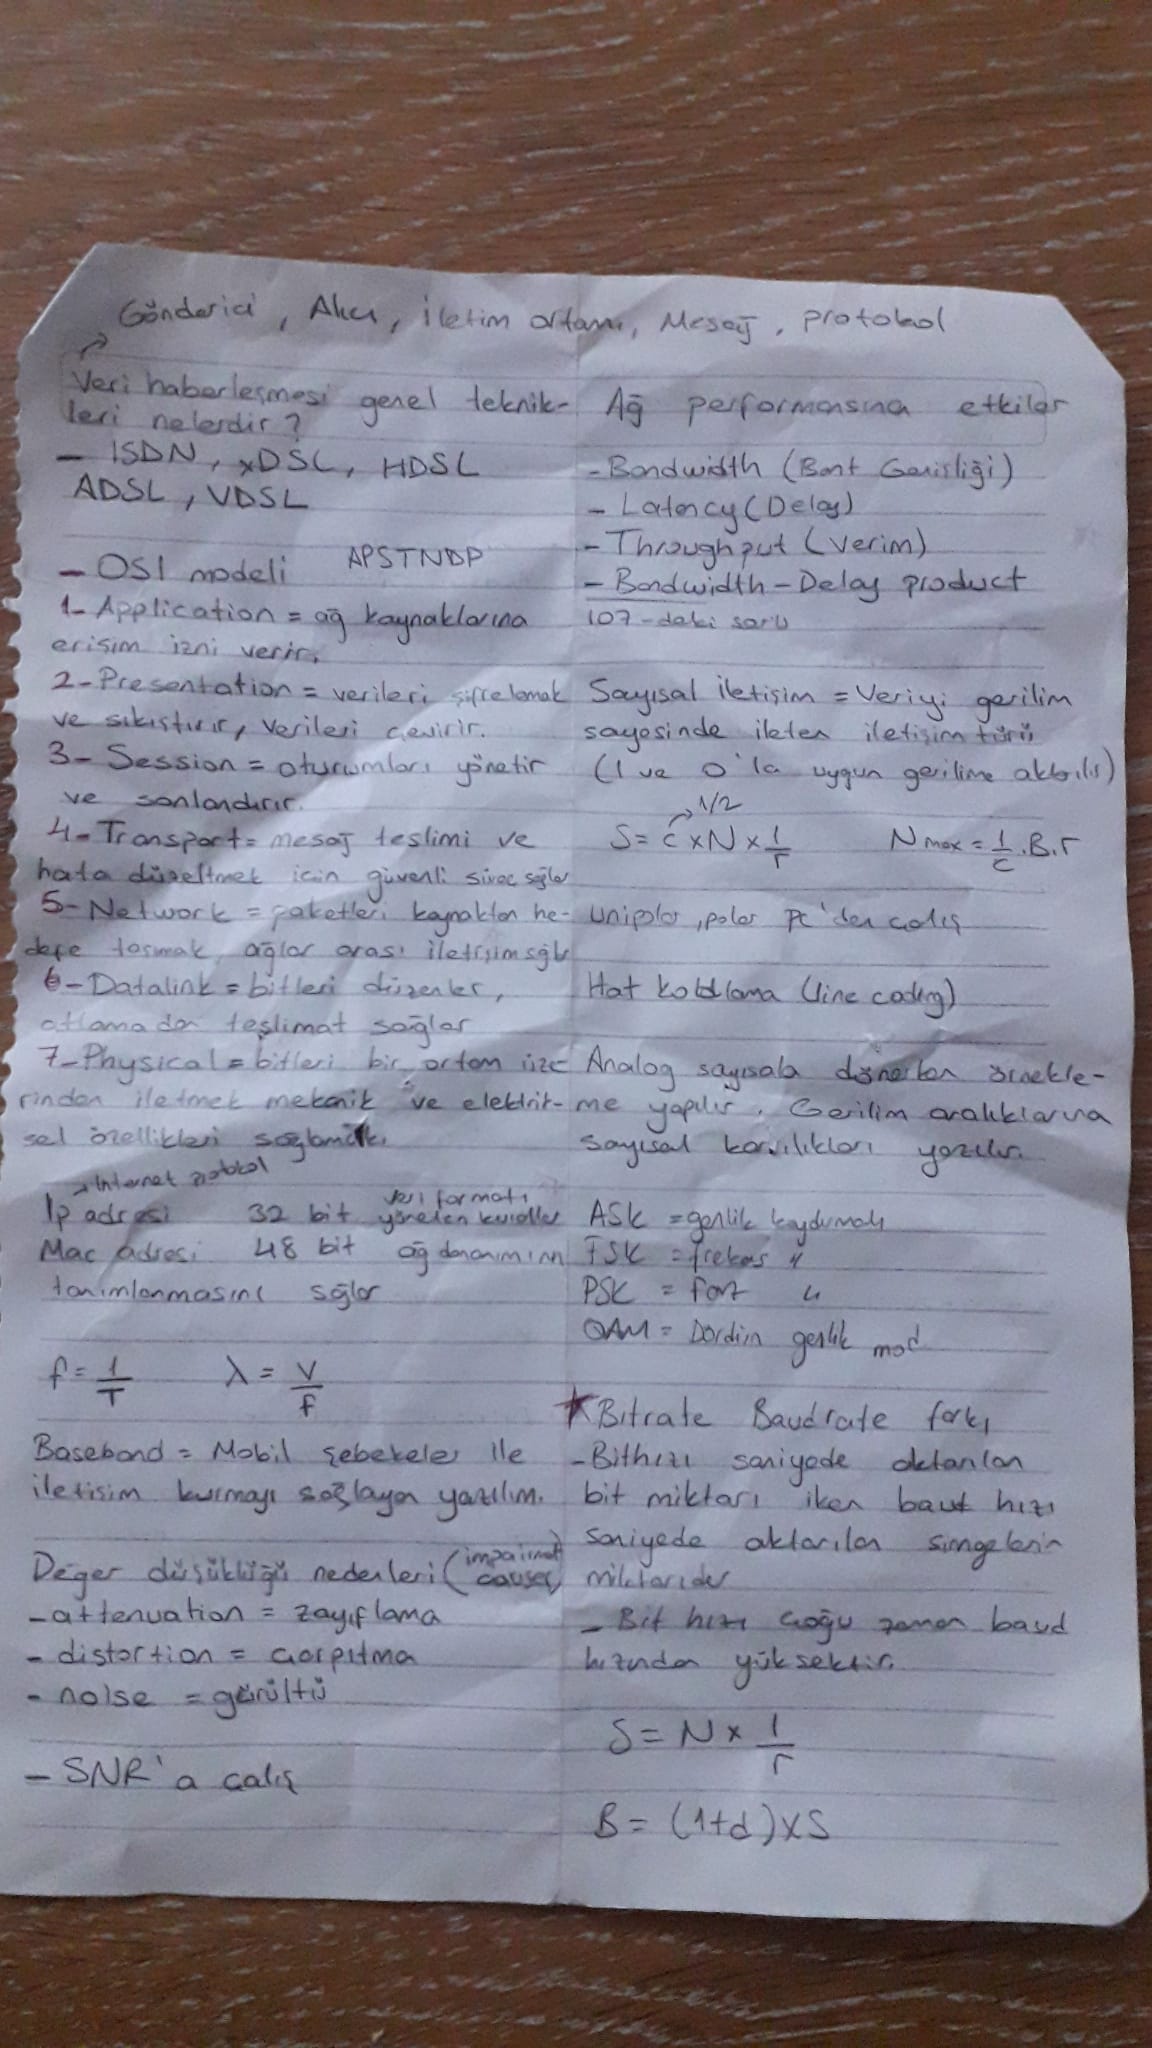 Gönderici, Alıcı, İletim ortamı, Mesaj, protokol
Veri haberleşmesi genel teknik-
leri nelerdir?
- ISDN, xDSL, HDSL
ADSL, VDSL
- OSI modeli APSTNDP
1- Application = ağ kaynaklarına
erişim izni verir.
2- Presentation = verileri şifrelemek
ve sıkıştırır, verileri çevirir.
3- Session = oturumları yönetir
ve sonlandırır.
4- Transport = mesaj teslimi ve
hata düzeltmek için güvenli sağlar
5- Network = paketleri kaynaktan he-
defe taşımak, ağlar arası iletişim sğlr
6- Datalink = bitleri düzenler,
atlamadan teslimat sağlar
7- Physical = bitleri bir ortam üze-
rinden iletmek mekanik ve elektrik-
sel özellikleri sağlamak
→ Internet protokol
Ip adresi 32 bit veri formatı
yöneten kurallar
Mac adresi 48 bit ağ donanımının
tanımlanmasını sğlar
f = 1/T λ = V/f
Baseband = Mobil şebekeler ile
iletişim kurmayı sağlayan yazılım.
Değer düşüklüğü nedenleri (impairment causes)
- attenuation = zayıflama
- distortion = çarpıtma
- noise = gürültü
- SNR'a çalış
Ağ performansına etkiler
- Bandwidth (Bant Genişliği)
- Latency (Delay)
- Throughput (Verim)
- Bandwidth - Delay product
107-deki soru
Sayısal iletişim = Veriyi gerilim
sayesinde ileten iletişim türü
(1 ve 0'la uygun gerilime aktarılır)
S = c x N x 1/r → 1/2 Nmax = 1/c . B . r
Unipolar, polar pc'den çalış
Hat kodlama (line coding)
Analog sayısala dönerken örnekle-
me yapılır. Gerilim aralıklarına
sayısal karşılıkları yazılır.
ASK = genlik kaydırmalı
FSK = frekans "
PSK = faz "
QAM = Dördün genlik mod
★ Bitrate Baudrate farkı
- Bithızı saniyede aktarılan
bit miktarı iken baut hızı
saniyede aktarılan simgelerin
miktarıdır
- Bit hızı çoğu zaman baud
hızından yüksektir.
S = N x 1/r
B = (1+d) x S